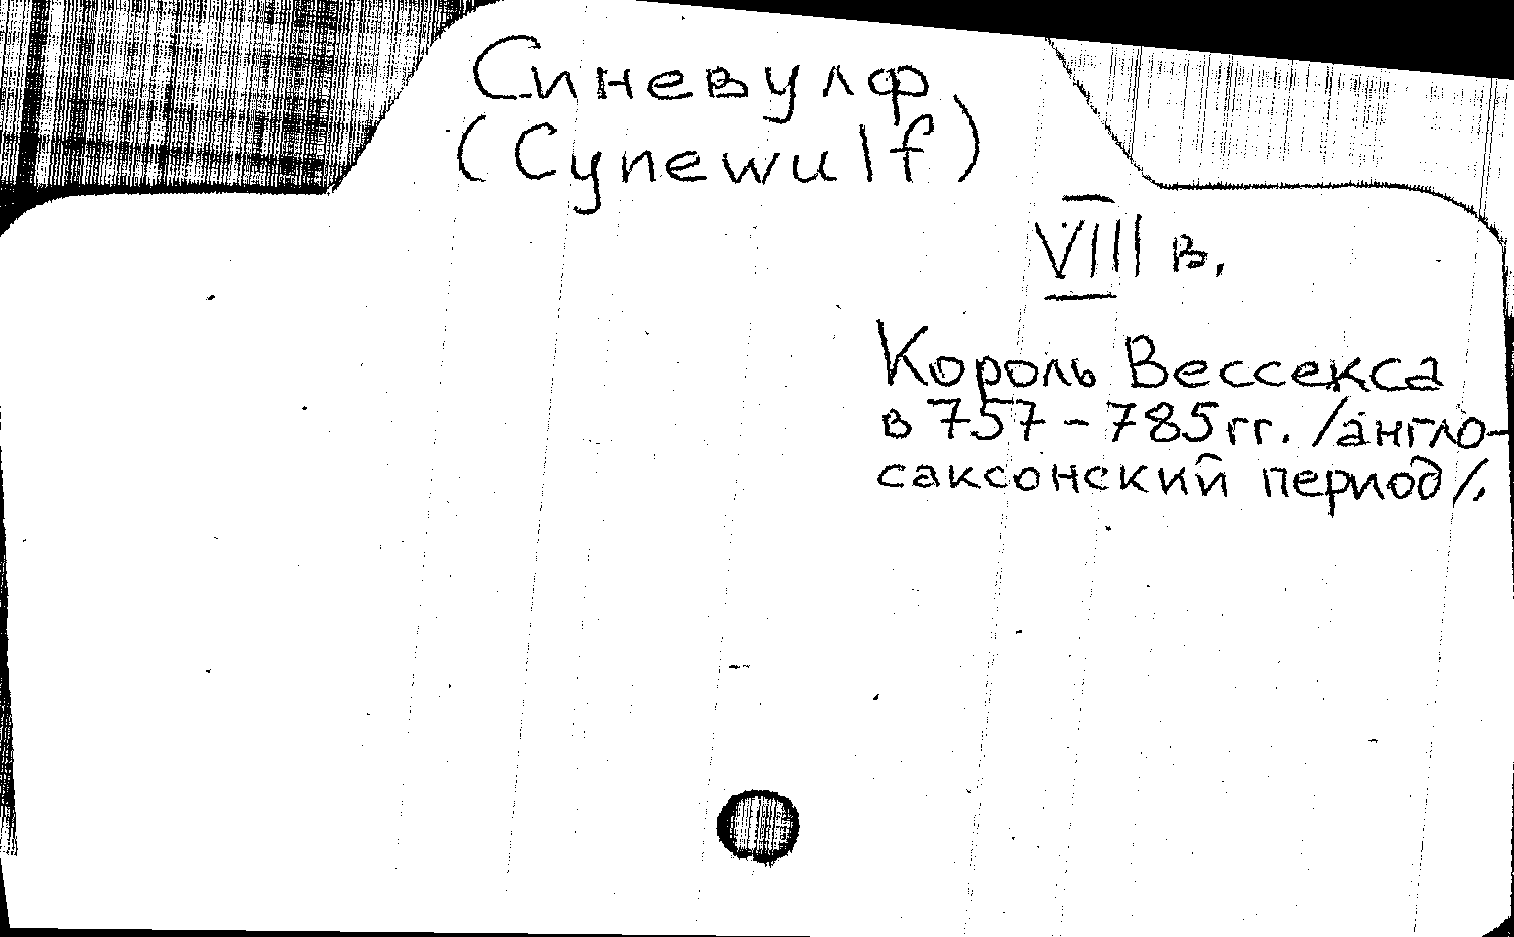 Синевулф
(Cynewulf)
VIII в.
Король Вессекса
в 757-785 гг. /англо-
саксонский период/.